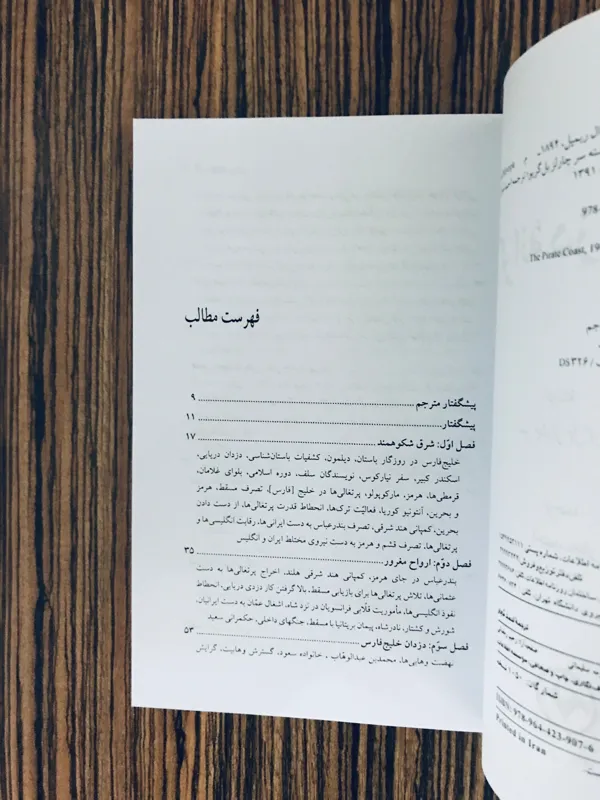 فهرست مطالب
پیشگفتار مترجم ........ ۹
پیشگفتار ........ ۱۱
فصل اوّل: شرق شکوهمند ........ ۱۷
خلیج‌فارس در روزگار باستان، دیلمون، کشفیات باستان‌شناسی، دزدان دریایی،
اسکندر کبیر، سفر نیارکوس، نویسندگان سلف، دوره اسلامی، بلوای غلامان،
قرمطی‌ها، هرمز، مارکوپولو، پرتغالی‌ها در خلیج [فارس]، تصرف مسقط، هرمز
و بحرین، آنتونیو کوریا، فعالیّت ترک‌ها، انحطاط قدرت پرتغالی‌ها، از دست دادن
بحرین، کمپانی هند شرقی، تصرف بندرعباس به دست ایرانی‌ها، رقابت انگلیسی‌ها و
پرتغالی‌ها، تصرف قشم و هرمز به دست نیروی مختلط ایران و انگلیس
فصل دوّم: ارواح مغرور ........ ۳۵
بندرعباس در جای هرمز، کمپانی هند شرقی هلند، اخراج پرتغالی‌ها به دست
عثمانی‌ها، تلاش پرتغالی‌ها برای بازیابی مسقط، بالا گرفتن کار دزدی دریایی، انحطاط
نفوذ انگلیسی‌ها، مأموریت قلّابی فرانسویان در نزد شاه، اشغال عمّان به دست ایرانیان،
شورش و کشتار، نادرشاه، پیمان بریتانیا با مسقط، جنگهای داخلی، حکمرانی سعید
فصل سوّم: دزدان خلیج‌فارس ........ ۵۳
نهضت وهابی‌ها، محمدبن عبدالوهّاب، خانواده سعود، گسترش وهابیت، گرایش
۱۸۹۴ -
۱۳۹۱
978-
The Pirate Coast, 19
DS۳۲۶ /
ISBN: 978-964-423-907-6
Printed in Iran